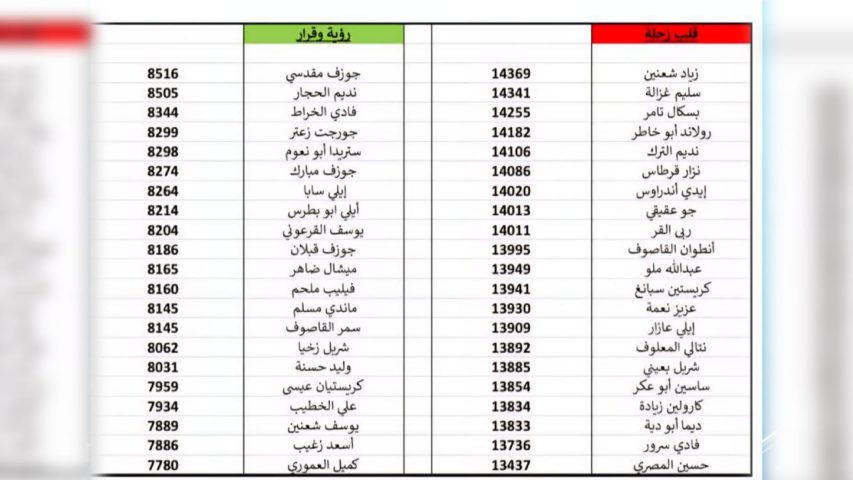 قلب زحلة رؤية وقرار
زياد شعنين 14369 جوزف مقدسي 8516
سليم غزالة 14341 نديم الحجار 8505
بسكال تامر 14255 فادي الخراط 8344
رولاند أبو خاطر 14182 جورجت زعتر 8299
نديم الترك 14106 ستريدا أبو نعوم 8298
نزار قرطاس 14086 جوزف مبارك 8274
إيدي أندراوس 14020 إيلي سابا 8264
جو عقيقي 14013 أيلي ابو بطرس 8214
ربى القر 14011 يوسف القرعوني 8204
أنطوان القاصوف 13995 جوزف قبلان 8186
عبدالله ملو 13949 ميشال ضاهر 8165
كريستين سبانغ 13941 فيليب ملحم 8160
عزيز نعمة 13930 ماندي مسلم 8145
إيلي عازار 13909 سمر القاصوف 8145
نتالي المعلوف 13892 شربل زخيا 8062
شربل بعيني 13885 وليد حسنة 8031
ساسين أبو عكر 13854 كريستيان عيسى 7959
كارولين زيادة 13834 علي الخطيب 7934
ديما أبو دية 13833 يوسف شعنين 7889
فادي سرور 13736 أسعد زغيب 7886
حسين المصري 13437 كميل العموري 7780